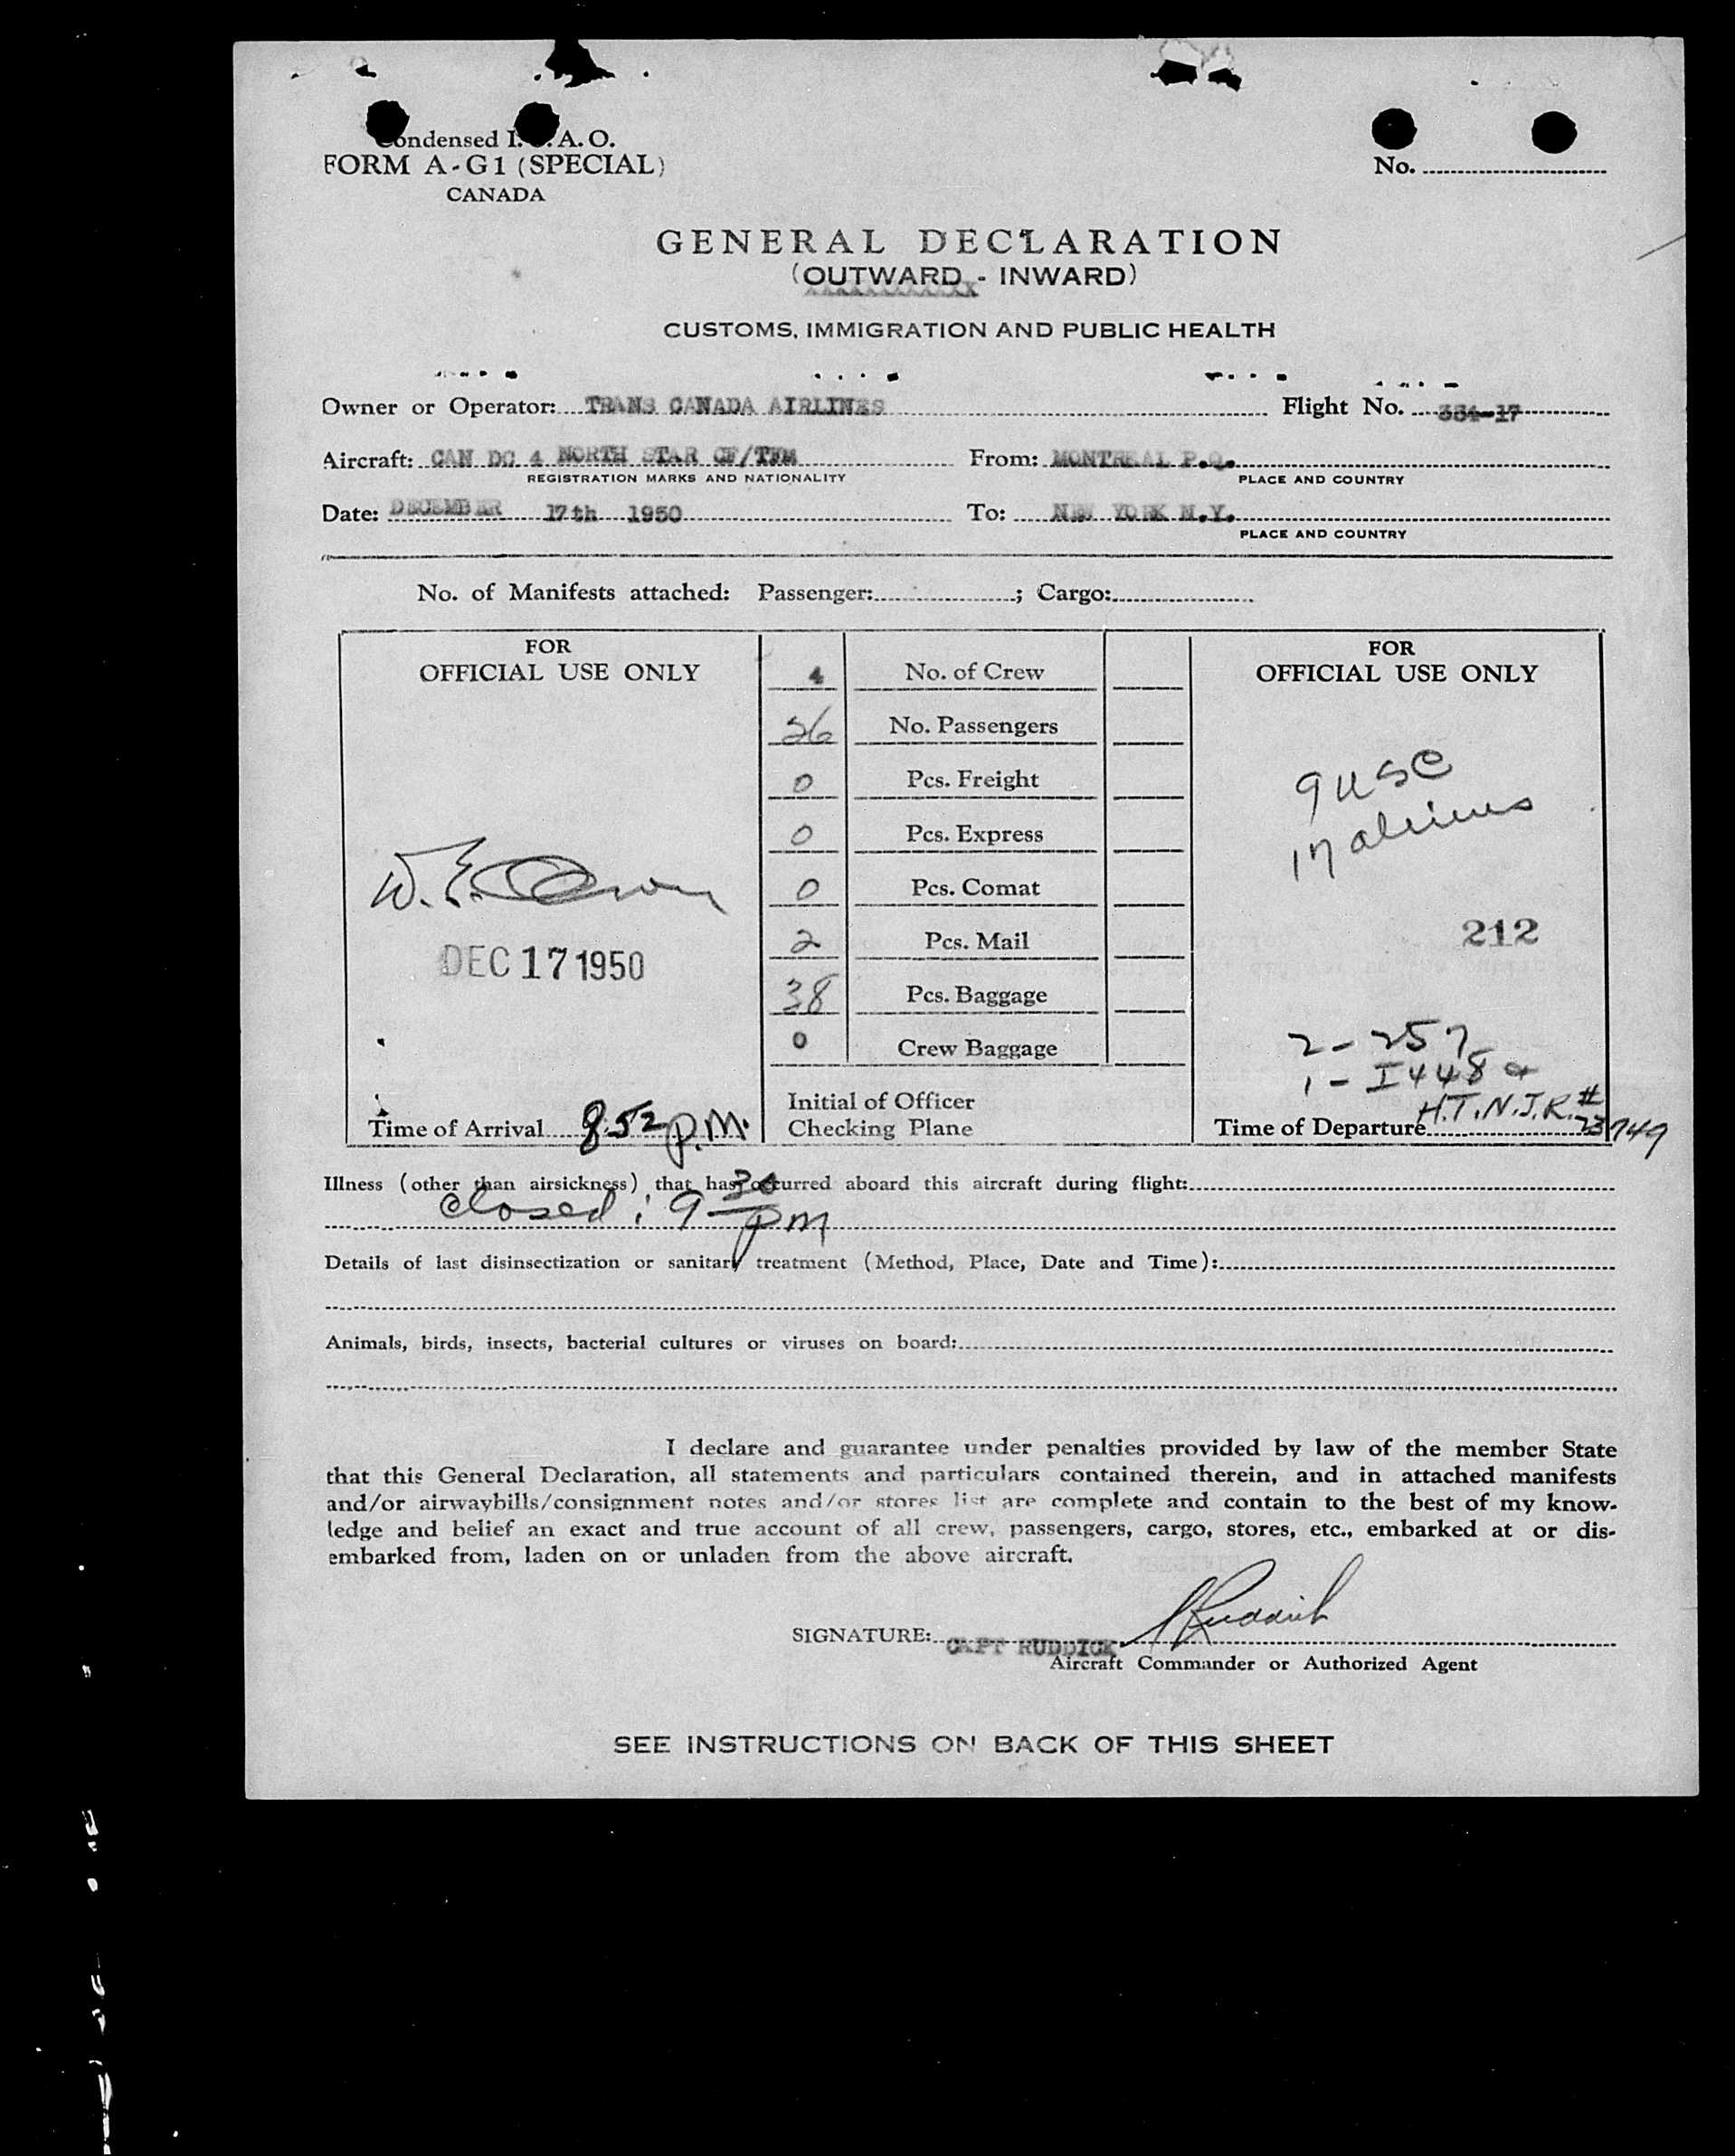 Condensed I.C.A.O.
FORM A-G1 (SPECIAL)
CANADA
No.
GENERAL DECLARATION
(OUTWARD - INWARD)
CUSTOMS, IMMIGRATION AND PUBLIC HEALTH
Owner or Operator: TRANS CANADA AIRLINES Flight No. 334-17
Aircraft: CAN DC 4 NORTH STAR CF/TFM From: MONTREAL P.Q.
REGISTRATION MARKS AND NATIONALITY PLACE AND COUNTRY
Date: DECEMBER 17th 1950 To: NEW YORK N.Y.
PLACE AND COUNTRY
No. of Manifests attached: Passenger: ; Cargo:
FOR
OFFICIAL USE ONLY
W. E.
DEC 17 1950
Time of Arrival 8:52 P.M.
4 No. of Crew
26 No. Passengers
0 Pcs. Freight
0 Pcs. Express
0 Pcs. Comat
2 Pcs. Mail
38 Pcs. Baggage
0 Crew Baggage
Initial of Officer
Checking Plane
FOR
OFFICIAL USE ONLY
9 USC
17 aliens
212
2 - 257
1 - I448 &
H.T.N.J.R. #
23749
Time of Departure
Illness (other than airsickness) that has occurred aboard this aircraft during flight:
Closed: 9 30 PM
Details of last disinsectization or sanitary treatment (Method, Place, Date and Time):
Animals, birds, insects, bacterial cultures or viruses on board:
I declare and guarantee under penalties provided by law of the member State
that this General Declaration, all statements and particulars contained therein, and in attached manifests
and/or airwaybills/consignment notes and/or stores list are complete and contain to the best of my know-
ledge and belief an exact and true account of all crew, passengers, cargo, stores, etc., embarked at or dis-
embarked from, laden on or unladen from the above aircraft.
SIGNATURE: CAPT RUDDICK Ruddick
Aircraft Commander or Authorized Agent
SEE INSTRUCTIONS ON BACK OF THIS SHEET